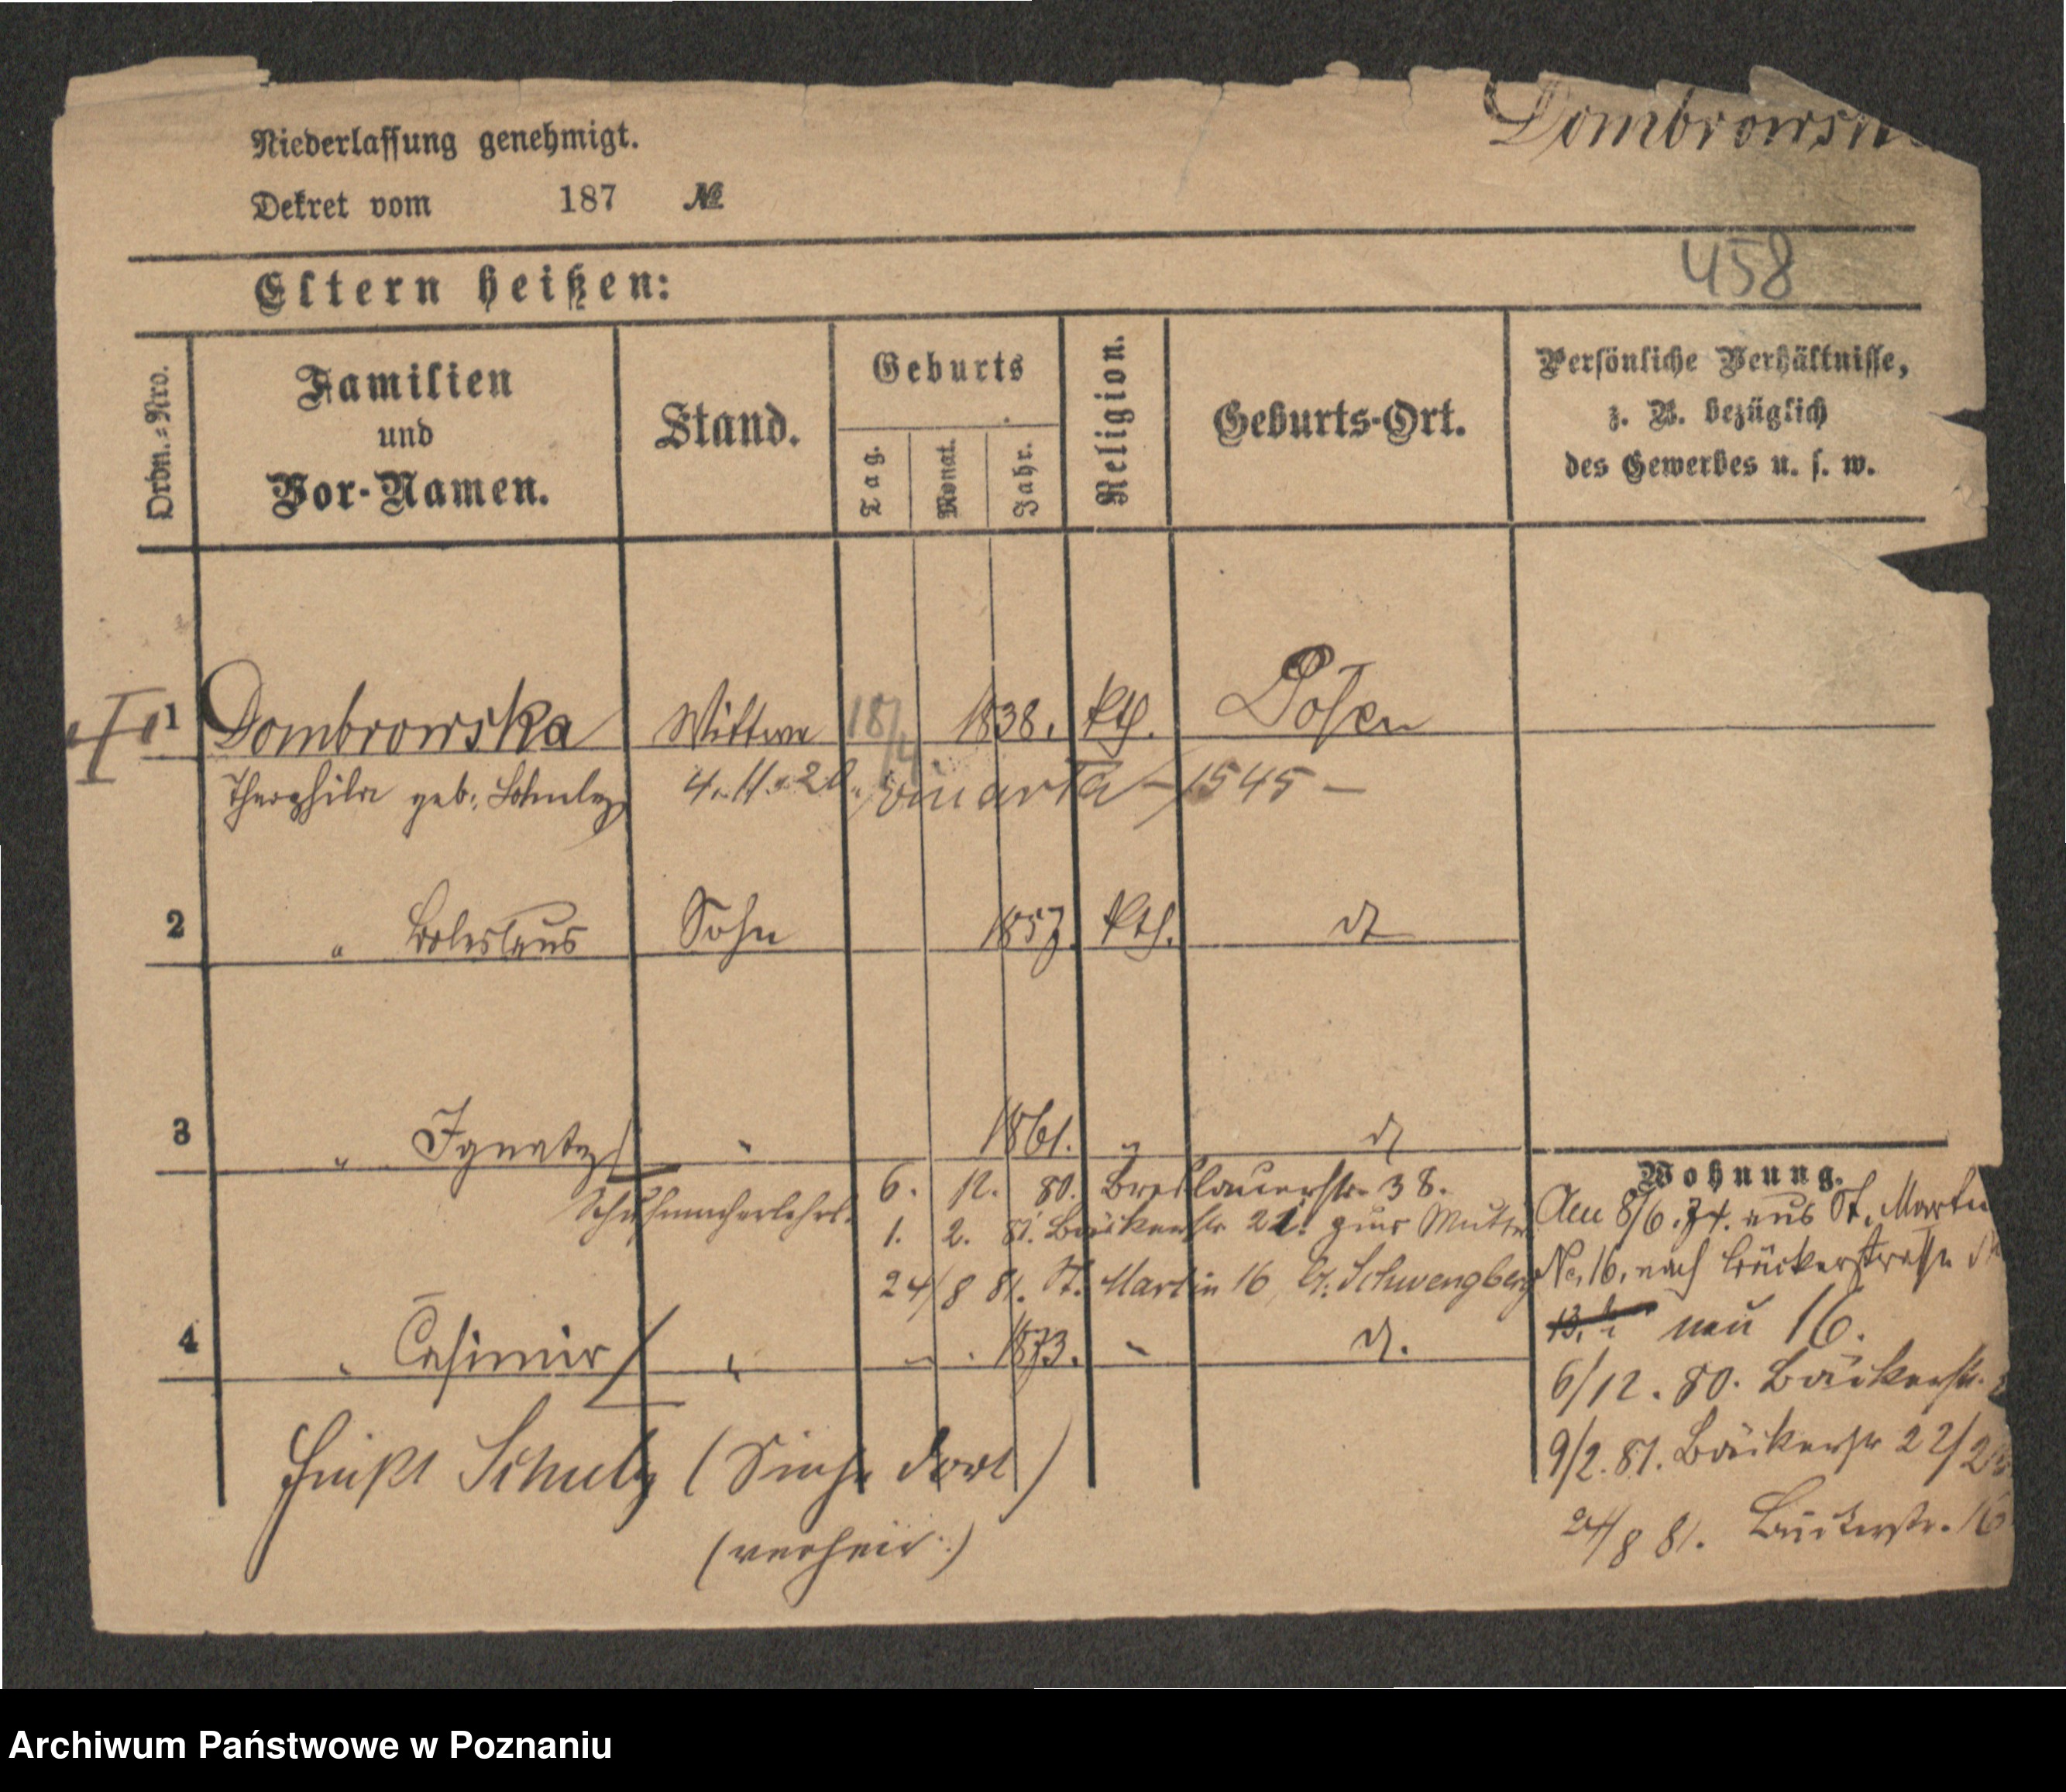 Dombrowsk
Niederlassung genehmigt.
Dekret vom 187 №
458
Eltern heißen:
Ordn.-Nro.
Familien
und
Vor-Namen.
Stand.
Geburts
Tag.
Monat.
Jahr.
Religion.
Geburts-Ort.
Persönliche Verhältnisse,
z. B. bezüglich
des Gewerbes u. s. w.
1 Dombrowska Wittwe 18/4. 1838. kth. Posen
Theophila geb: 4. 11. 20. 1545 –
2 " Boleslaus Sohn 1857. kth. dt
3 " Ignatz " 1861. " dt
Schuhmacherlehrl.
6. 12. 80. Breslauerstr. 38.
1. 2. 81. Bäckerstr 22. zur Mutter
24/8 81. St. Martin 16, Schwengberg
4 " Casimir " 1873. " dt.
heißt Schulz (Siehe dort)
(verheir:)
Wohnung.
Am 8/6. 74. aus St. Martin
No. 16. nach Bäckerstraße
13. neu 16.
6/12. 80. Bäckerstr.
9/2. 81. Bäckerstr 22/2
24/8 81. Bäckerstr. 16
Archiwum Państwowe w Poznaniu